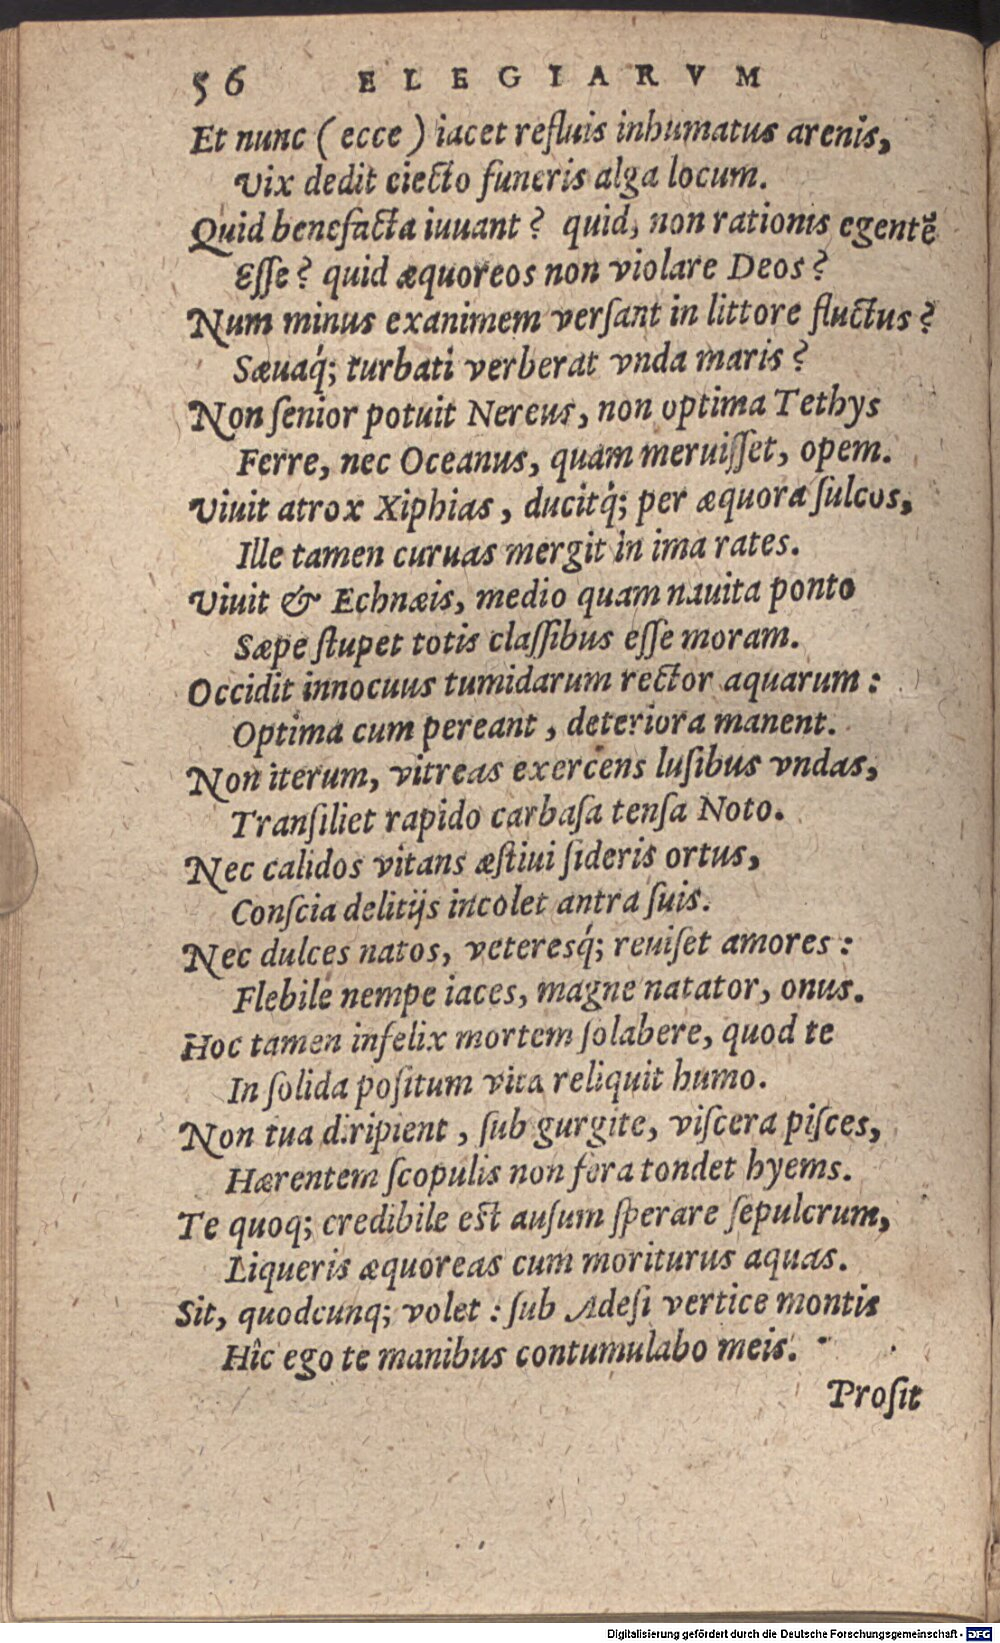 56 ELEGIARVM
Et nunc (ecce) iacet refluis inhumatus arenis,
Vix dedit eiecto funeris alga locum.
Quid benefacta iuuant? quid, non rationis egentẽ
Esse? quid æquoreos non violare Deos?
Num minus exanimem verſant in littore fluctus?
Sæuaq́; turbati verberat vnda maris?
Non ſenior potuit Nereus, non optima Tethys
Ferre, nec Oceanus, quam meruiſſet, opem.
Viuit atrox Xiphias, ducitq́; per æquora ſulcos,
Ille tamen curuas mergit in ima rates.
Viuit & Echnæis, medio quam nauita ponto
Sæpe ſtupet totis claſſibus eſſe moram.
Occidit innocuus tumidarum rector aquarum:
Optima cum pereant, deteriora manent.
Non iterum, vitreas exercens luſibus vndas,
Tranſiliet rapido carbaſa tenſa Noto.
Nec calidos vitans æſtiui ſideris ortus,
Conſcia delitijs incolet antra ſuis.
Nec dulces natos, veteresq́; reuiſet amores:
Flebile nempe iaces, magne natator, onus.
Hoc tamen infelix mortem ſolabere, quod te
In ſolida poſitum vita reliquit humo.
Non tua diripient, ſub gurgite, viſcera piſces,
Hærentem ſcopulis non fera tondet hyems.
Te quoq; credibile eſt auſum ſperare ſepulcrum,
Liqueris æquoreas cum moriturus aquas.
Sit, quodcunq; volet: ſub Adeſi vertice montis
Hîc ego te manibus contumulabo meis.
Proſit
Digitalisierung gefördert durch die Deutsche Forschungsgemeinschaft - DFG